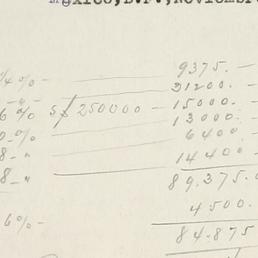 México, D.F., Noviembre
1/4 %- 9375.-
-"- 31200.-
6 % s/ 250000 - 15000.-
0-% 13000.-
8-" 6400-
8-" 14400-
89.375.0
6%- 4500.-
84.875